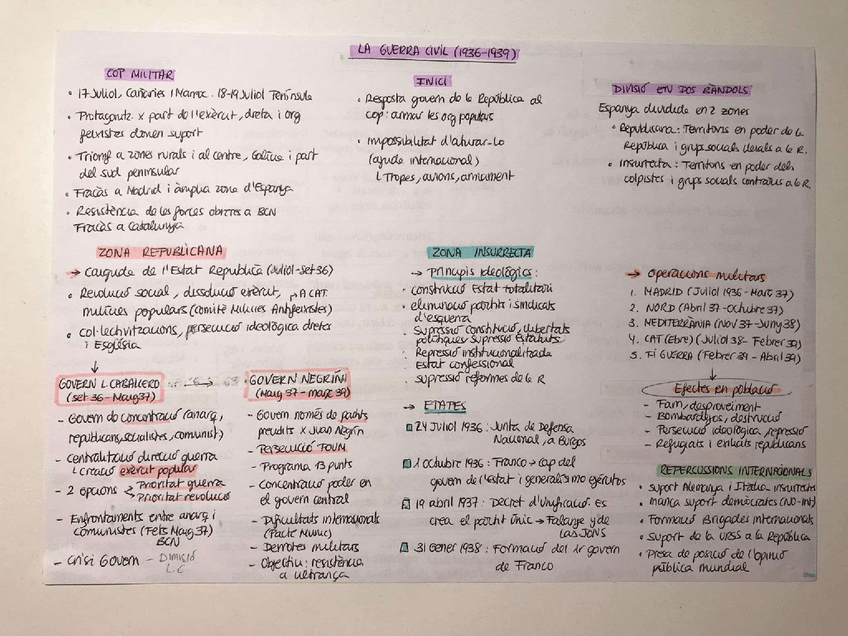 LA GUERRA CIVIL (1936-1939)
COP MILITAR
• 17 Juliol, Canàries i Marroc. 18-19 Juliol Península
• Protagonitz x part de l'exèrcit, dreta i org
feixistes donen suport
• Triomf a zones rurals i al centre, Galícia i part
del sud peninsular
• Fracàs a Madrid i àmplia zona d'Espanya
• Resistència de les forces obreres a BCN
Fracàs a Catalunya
INICI
• Resposta govern de la República al
cop: armar les org populars
• Impossibilitat d'aturar-lo
(ajuda internacional)
Tropes, avions, armament
DIVISIÓ EN DOS BÀNDOLS
Espanya dividida en 2 zones
• Republicana: Territoris en poder de la
República i grups socials lleials a la R.
• Insurrecta: Territoris en poder dels
colpistes i grups socials contraris a la R.
ZONA REPUBLICANA
→ caiguda de l'Estat Republicà (Juliol-set 36)
• Revolució social, dissolució exèrcit, → A CAT
milícies populars (Comitè Milícies Antifeixistes)
• col·lectivitzacions, persecució ideològica dreta
i Església
GOVERN L. CABALLERO
(set 36-Maig 37)
- Govern de concentració (anarq,
republicans, socialistes, comunist)
- Centralització direcció guerra
Creació exèrcit popular
- 2 opcions Prioritat guerra
Prioritat revolució
- Enfrontaments entre anarq i
comunistes (Fets Maig 37)
BCN
- Crisi Govern - Dimissió
L.C
GOVERN NEGRÍN
(Maig 37 - març 39)
- Govern només de partits
presidits x Juan Negrín
- Persecució POUM
- Programa 13 punts
- Concentració poder en
el govern central
- Dificultats internacionals
(Pacte Munic)
- Derrotes militars
- Objectiu: resistència
a ultrança
ZONA INSURRECTA
→ Principis ideològics:
• construcció Estat totalitari
• eliminació partits i sindicats
d'esquerra
• Supressió constitució, llibertats
polítiques supressió Estatuts
• Repressió institucionalitzada
• Estat confessional
• supressió reformes de la R
→ ETAPES
24 Juliol 1936: Junta de Defensa
Nacional, a Burgos
1 Octubre 1936: Franco → cap del
govern de l'estat i generalísimo ejércitos
19 abril 1937: Decret d'Unificació. Es
crea el partit únic → Falange y de
las JONS
31 Gener 1938: Formació del 1r govern
de Franco
→ Operacions militars
1. MADRID (Juliol 1936 - Març 37)
2. NORD (Abril 37 - Octubre 37)
3. MEDITERRÀNIA (Nov 37 - Juny 38)
4. CAT (Ebre) (Juliol 38 - Febrer 39)
5. Fi GUERRA (Febrer 39 - Abril 39)
Efectes en població
- Fam, desproveïment
- Bombardejos, destrucció
- Persecució ideològica, repressió
- Refugiats i exiliats republicans
REPERCUSSIONS INTERNACIONALS
• Suport Alemanya i Itàlia insurrectes
• manca suport demòcrates (NO-Int)
• Formació Brigades internacionals
• Suport de la URSS a la República
• Presa de posició de l'opinió
pública mundial